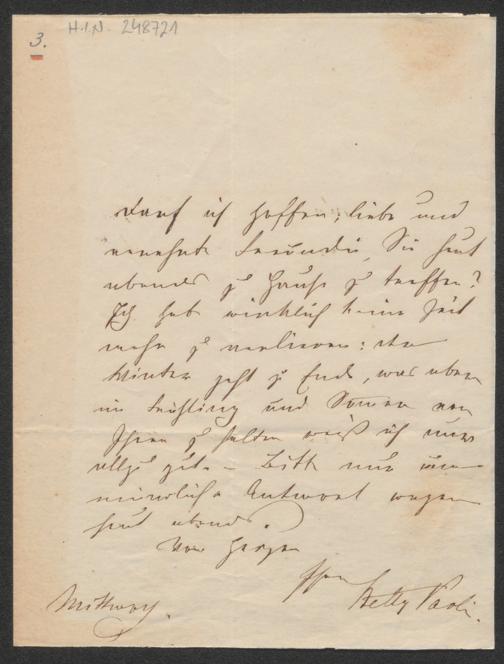 3.
H.I.N. 248721
Darf ich hoffen, liebe und
verehrte Freundin, Sie heut
abends zu Hause zu treffen?
Ich habe wirklich keine Zeit
mehr zu verlieren: der
Winter geht zu Ende, was aber
im Frühling und Sommer von
Ihnen zu halten weiß ich nur
allzu gut. – Bitte nur um
mündliche Antwort wegen
heut abends.
Von Herzen
Ihre
Betty Paoli.
Mittwoch.